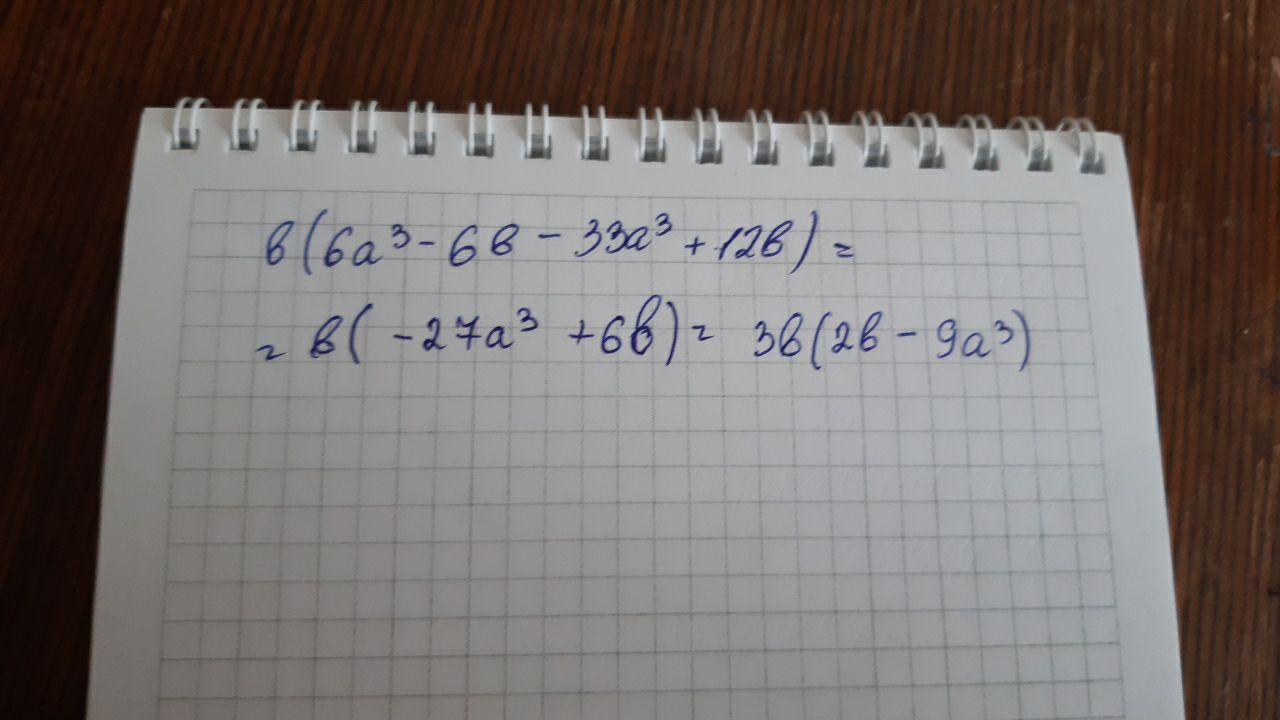 в(6а³ - 6в - 33а³ + 12в) =
= в( - 27а³ + 6в) = 3в(2в - 9а³)